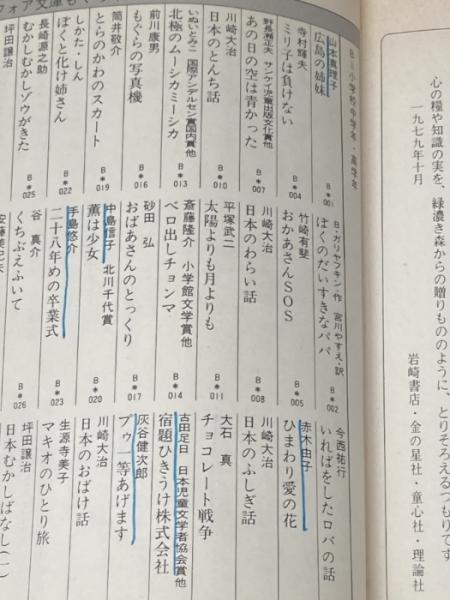 心の糧や知識の実を、緑濃き森からの贈りもののように、とりそろえるつもりです
一九七九年十月
岩崎書店・金の星社・童心社・理論社
フォア文庫
B=小学校中学年・高学年
山本真理子
広島の姉妹
B*001
寺村輝夫
ミリ子は負けない
B*004
野長瀬正夫 サンケイ児童出版文化賞他
あの日の空は青かった
B*007
川崎大治
日本のとんち話
B*010
いぬいとみこ 国際アンデルセン賞国内賞他
北極のムーシカミーシカ
B*013
前川康男
もぐらの写真機
B*016
筒井敬介
とらのかわのスカート
B*019
しかた・しん
ぼくと化け姉さん
B*022
長崎源之助
むかしむかしゾウがきた
B*025
坪田譲治
B・ガリヤフキン・作 宮川やすえ・訳
ぼくのだいすきなパパ
B*002
竹崎有斐
おかあさんSOS
B*005
川崎大治
日本のわらい話
B*008
平塚武二
太陽よりも月よりも
B*011
斎藤隆介 小学館文学賞他
ベロ出しチョンマ
B*014
砂田弘
おばあさんのとっくり
B*017
中島信子 北川千代賞
薫は少女
B*020
手島悠介
二十八年めの卒業式
B*023
谷真介
くちぶえふいて
B*026
安藤美紀夫
今西祐行
いればをしたロバの話
赤木由子
ひまわり愛の花
川崎大治
日本のふしぎ話
大石真
チョコレート戦争
古田足日 日本児童文学者協会賞他
宿題ひきうけ株式会社
灰谷健次郎
プゥ一等あげます
川崎大治
日本のおばけ話
生源寺美子
マキオのひとり旅
坪田譲治
日本むかしばなし(一)